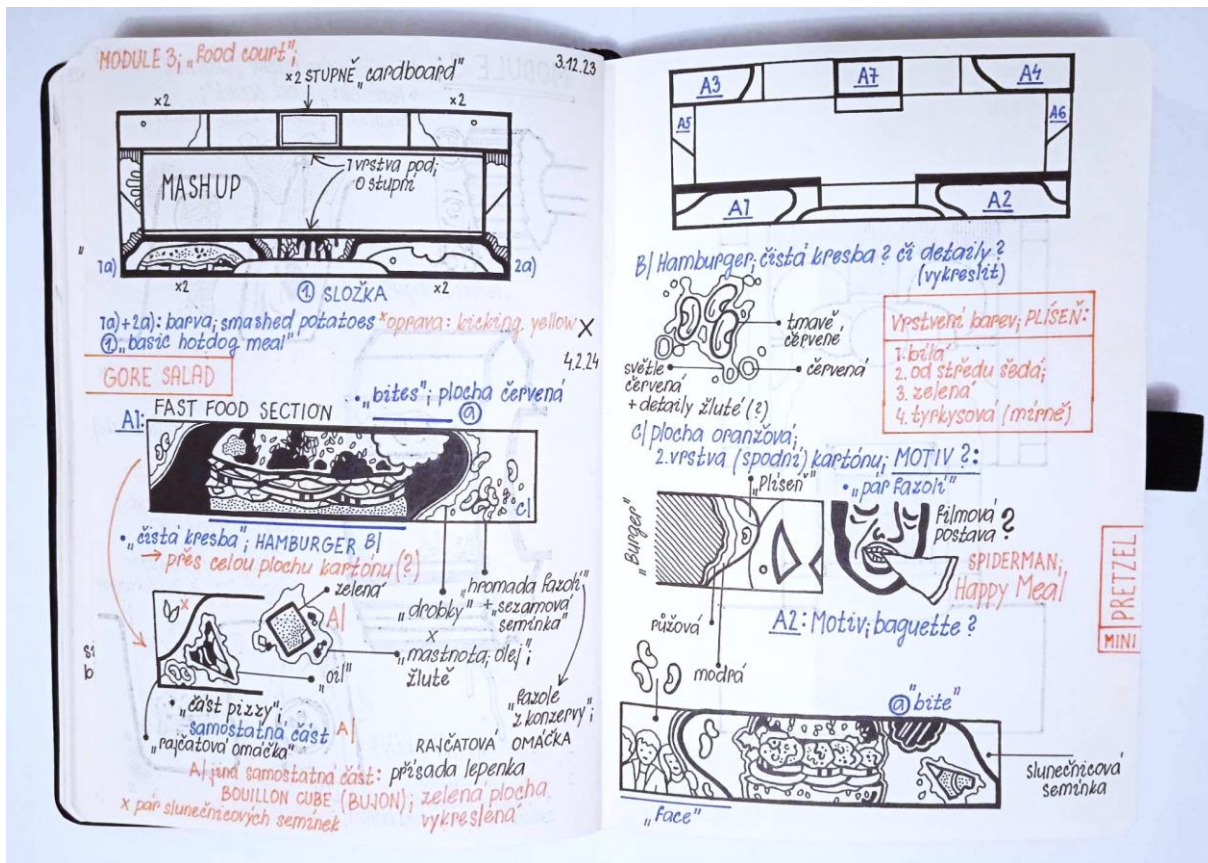 MODULE 3; „food court";
3.12.23
×2 STUPNĚ „cardboard"
×2
×2
1 vrstva pod;
0 stupni
MASHUP
1a)
2a)
×2
×2
① SLOŽKA
1a)+2a): barva; smashed potatoes ×oprava: kicking yellow
① „basic hotdog meal"
4.2.24
GORE SALAD
• „bites"; plocha červená
ⓐ
A1: FAST FOOD SECTION
C|
• „čistá kresba"; HAMBURGER B|
→ přes celou plochu kartónu (?)
zelená
A|
x
„oil"
„drobky"
x
„mastnota; olej";
žlutě
„hromada fazolí"
+ „sezamová
semínka"
„fazole
z konzervy";
RAJČATOVÁ OMÁČKA
• „část pizzy";
samostatná část A|
„rajčatová omáčka"
A| jiná samostatná část: přísada lepenka
BOUILLON CUBE (BUJON); zelená plocha
vykreslená
x pár slunečnicových semínek
A3
A7
A4
A5
A6
A1
A2
B| Hamburger; čistá kresba? či detaily?
(vykreslit)
tmavě
červené
červená
světle
červená
+ detaily žluté (?)
Vrstvení barev; PLÍSEŇ:
1. bílá
2. od středu šedá;
3. zelená
4. tyrkysová (mírně)
C| plocha oranžová;
2. vrstva (spodní) kartónu; MOTIV?:
„Plíseň"
• „pár fazolí"
„Burger"
filmová
postava?
SPIDERMAN;
Happy Meal
růžová
modrá
A2: Motiv; baguette?
MINI PRETZEL
ⓐ "bite"
slunečnicová
semínka
„face"